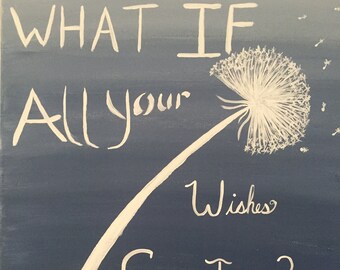 WHAT IF
All Your
Wishes